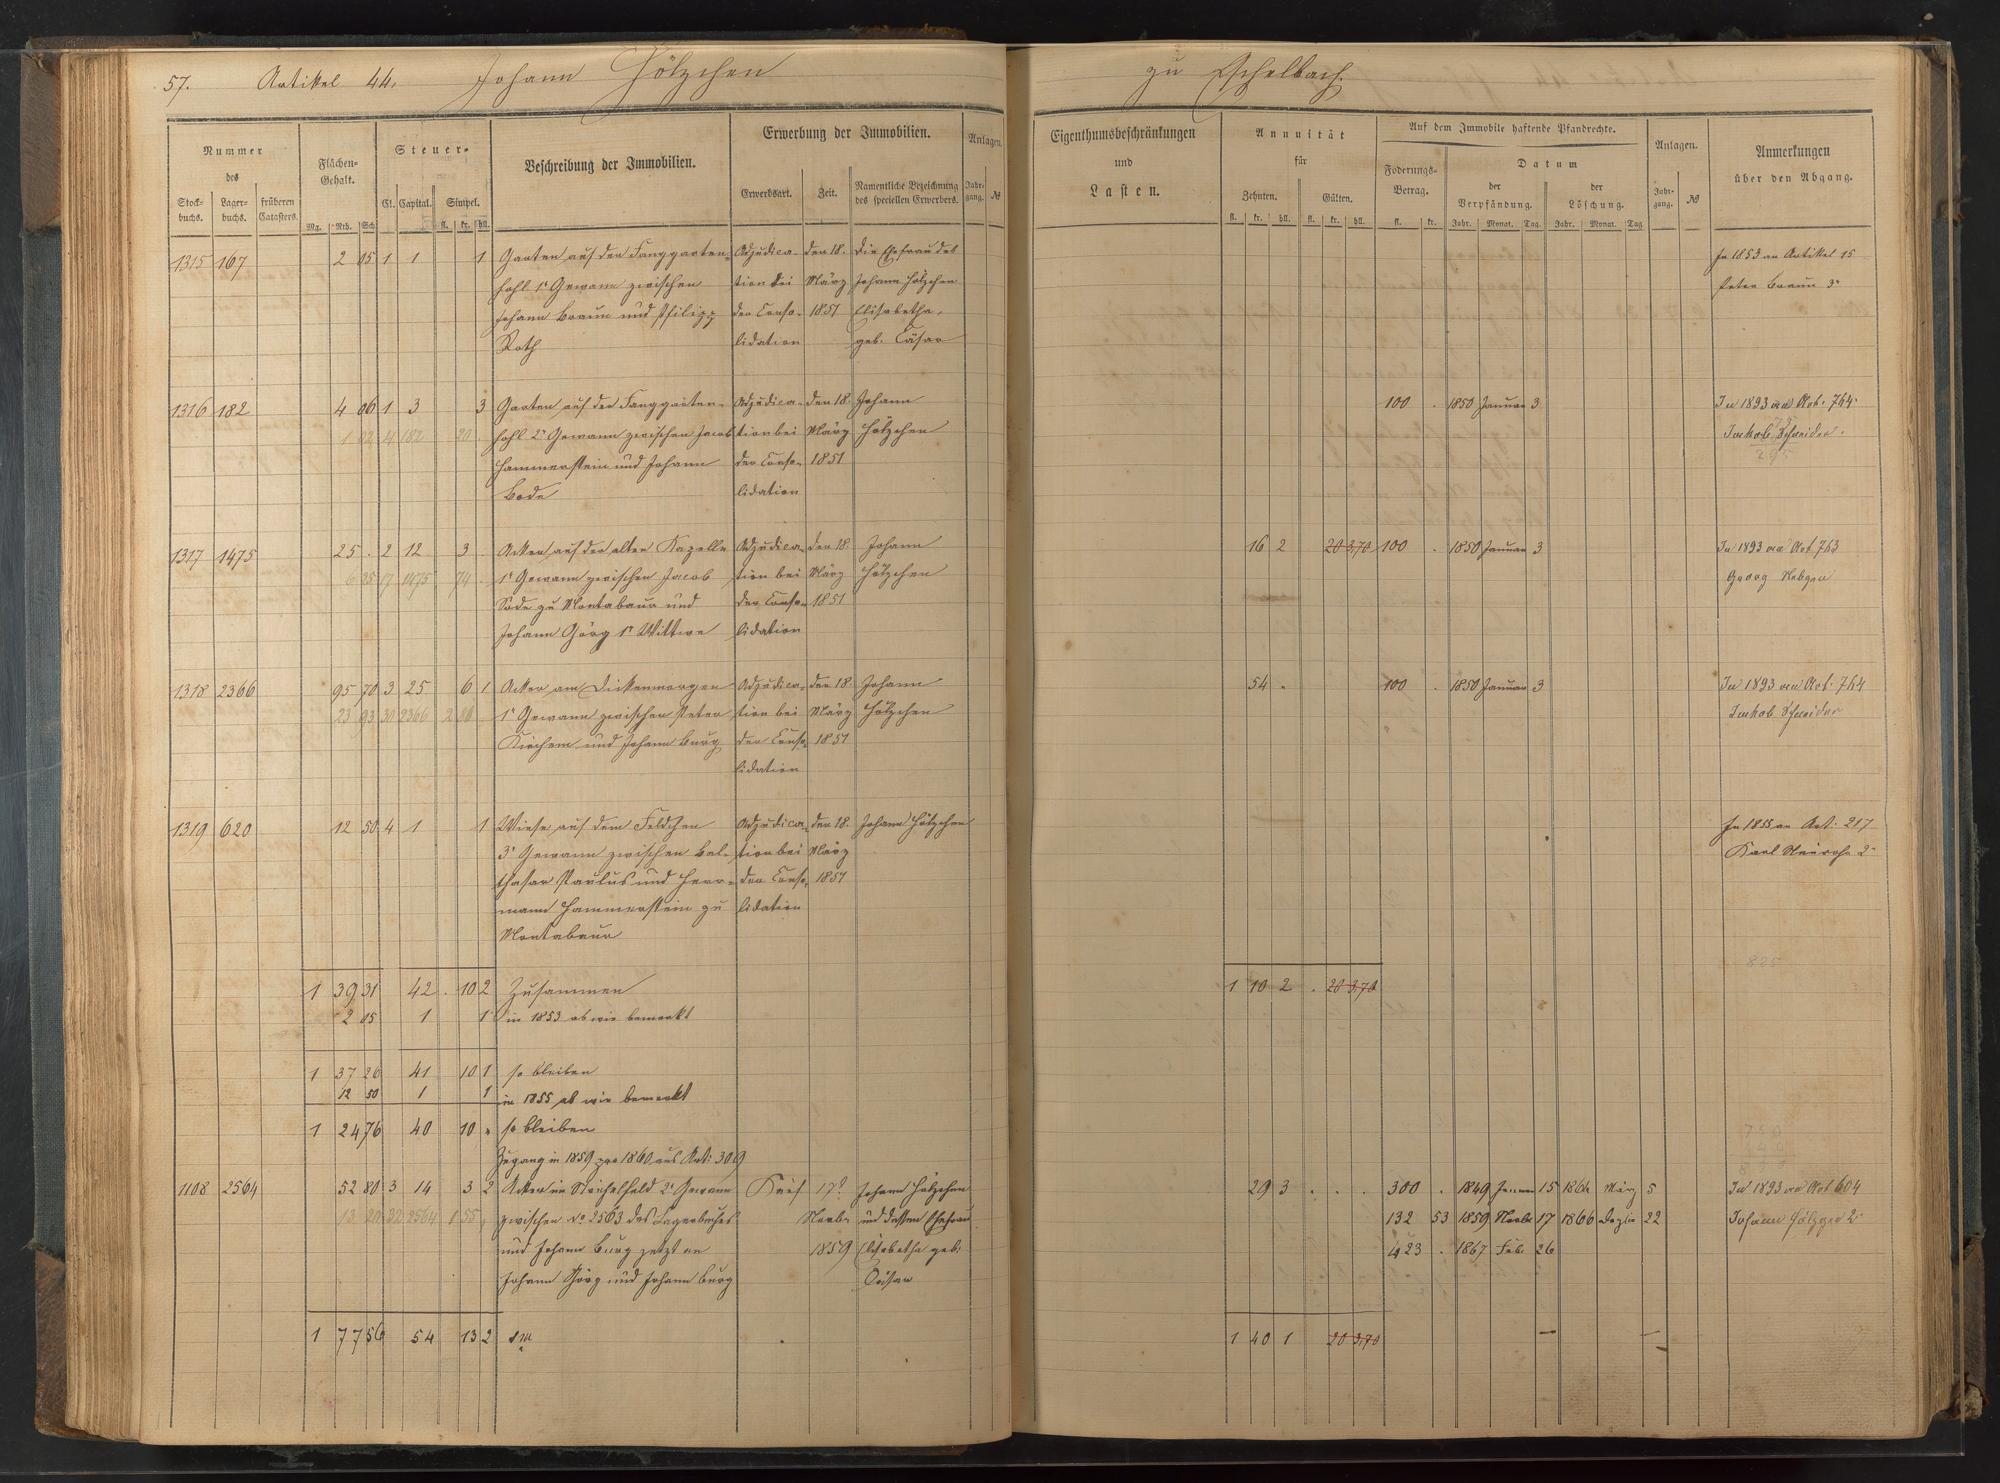 57. Artikel 44. Johann Hölzchen zu Eschelbach.
Nummer des
Stockbuchs. Lagerbuchs. früheren Catasters.
Flächen-Gehalt.
Mg. Rth. Sch
Steuer-
Cl. Capital. Simpel.
fl. kr. hll.
Beschreibung der Immobilien.
Erwerbung der Immobilien.
Erwerbsart. Zeit. Namentliche Bezeichnung des speciellen Erwerbers.
Anlagen.
Jahrgang. №
Eigenthumsbeschränkungen
und
Lasten.
Annuität
für
Zehnten. Gülten.
fl. kr. hll. fl. kr. hll.
Auf dem Immobile haftende Pfandrechte.
Foderungs-Betrag.
fl. kr.
Datum
der Verpfändung. der Löschung.
Jahr. Monat. Tag. Jahr. Monat. Tag
Anlagen.
Jahrgang. №
Anmerkungen
über den Abgang.
1315 167 2 05 1 1 1 Garten auf der Langgarten- Adjudica- den 18. Die Ehefrau des In 1853 an Artikel 15
hohl 1r Gewann zwischen tion bei März Johann Hölzchen Peter Braun 3r
Johann Braun und Philipp der Conso- 1851 Elisabetha,
Roth lidation geb. Cäsar
1316 182 4 06 1 3 3 Garten auf der Langgarten- Adjudica- den 18. Johann 100 . 1850 Januar 3 In 1893 an Art. 764
1 02 4 182 20 hohl 2r Gewann zwischen Jacob tion bei März Hölzchen Jakob Schneider.
Hammerstein und Johann der Conso- 1851 295
Bode lidation
1317 1475 25 . 2 12 3 Acker auf der alten Kapelle Adjudica- den 18. Johann 16 2 20 3,70 100 . 1850 Januar 3 In 1893 an Art. 763
6 25 17 1475 74 1r Gewann zwischen Jacob tion bei März Hölzchen Georg Nebgen
Sode zu Montabaur und der Conso- 1851
Johann Görg 1r Wittwe lidation
1318 2366 95 70 3 25 6 1 Acker am Dickenmorgen Adjudica- den 18. Johann 54 . 100 . 1850 Januar 3 In 1893 an Art. 764
23 93 30 2366 2 86 1r Gewann zwischen Peter tion bei März Hölzchen Jakob Schneider
Kirchem und Johann Burg der Conso- 1851
lidation
1319 620 12 50 4 1 1 Wiese auf dem Feldchen Adjudica- den 18. Johann Hölzchen In 1855 an Art. 217
3r Gewann zwischen Bal- tion bei März Karl Neuroth 2r
thasar Paulus und Herr- der Conso- 1851
mann Hammerstein zu lidation
Montabaur
825
1 39 31 42 . 10 2 Zusammen 1 10 2 . 20 3,70
2 05 1 1 in 1853 ab wie bemerkt
1 37 26 41 10 1 so bleiben
12 50 1 1 in 1855 ab wie bemerkt
1 24 76 40 10 " so bleiben
Zugang in 1859 pro 1860 aus Art: 309
1108 2564 52 80 3 14 3 2 Acker im Reichelfeld 2r Gewann Kauf 17n Johann Hölzchen 29 3 . . . 300 . 1849 Januar 15 1864 März 5 In 1893 an Art 604
13 20 32 2564 1 55 zwischen No 2563 des Lagerbuches Novbr und dessen Ehefrau 132 53 1859 Novbr 17 1866 Dezbr 22 Johann Hölzgen 2r
und Johann Burg jetzt an 1859 Elisabetha geb: 423 . 1867 Feb. 26
Johann Görg und Johann Burg Cäsar
1 77 56 54 13 2 Sm 1 40 1 20 3,70